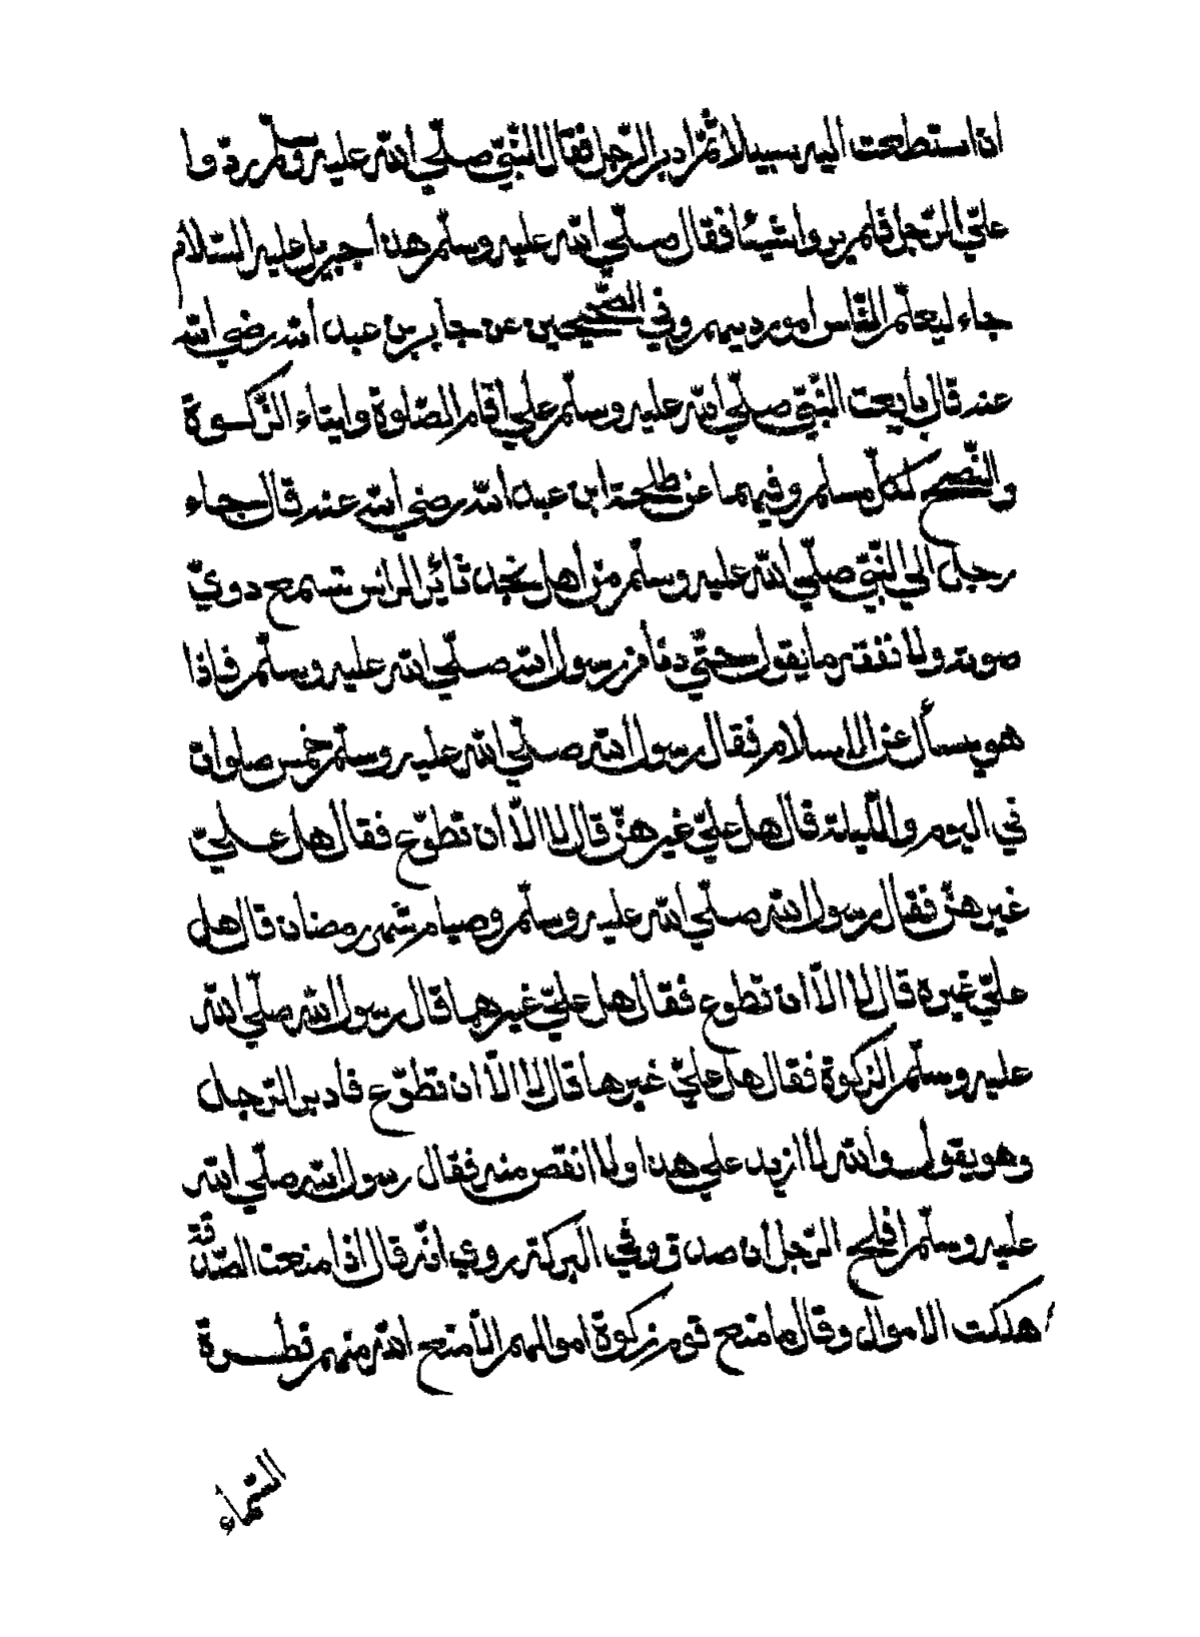 ان استطعت اليه سبيلا ثمّ ادبر الرّجل فقال النّبيّ صلّي الله عليه وسلّم ردّوا
عليّ الرّجل فلم يروا شيئا فقال صلّي الله عليه وسلّم هذا جبريل عليه السّلام
جاء ليعلّم النّاس امور دينهم وفي الصّحيحين عن جابر بن عبد الله رضي الله
عنه قال بايعت النّبيّ صلّي الله عليه وسلّم علي اقام الصّلوة وايتاء الزّكوة
والنّصح لكلّ مسلم وفيهما عن طلحة ابن عبد الله رضي الله عنه قال جاء
رجل الي النّبيّ صلّي الله عليه وسلّم من أهل نجد ثائر الراس نسمع دويّ
صوته ولا نفقه ما يقول حتّي دنا من رسول الله صلّي الله عليه وسلّم فإذا
هو يسأل عن الاسلام فقال رسول الله صلّي الله عليه وسلّم خمس صلوات
في اليوم واللّيلة قال هل عليّ غيرهنّ قال لا الّا ان تطوّع فقال هل عليّ
غيرهنّ فقال رسول الله صلّي الله عليه وسلّم وصيام شهر رمضان قال هل
عليّ غيره قال لا الّا ان تطوع فقال هل عليّ غيرهما قال رسول الله صلّي الله
عليه وسلّم الزكوة فقال هل عليّ غيرها قال لا الّا ان تطوّع فأدبر الرّجل
وهو يقول والله لا ازيد علي هذا ولا انقص منه فقال رسول الله صلّي الله
عليه وسلّم افلح الرّجل أن صدق وفي البركة روي انّه قال اذا منعت الصّدقة
هلكت الاموال وقال ما منع قوم زكوة اموالهم الّا منع الله منهم قطرة
السّماء